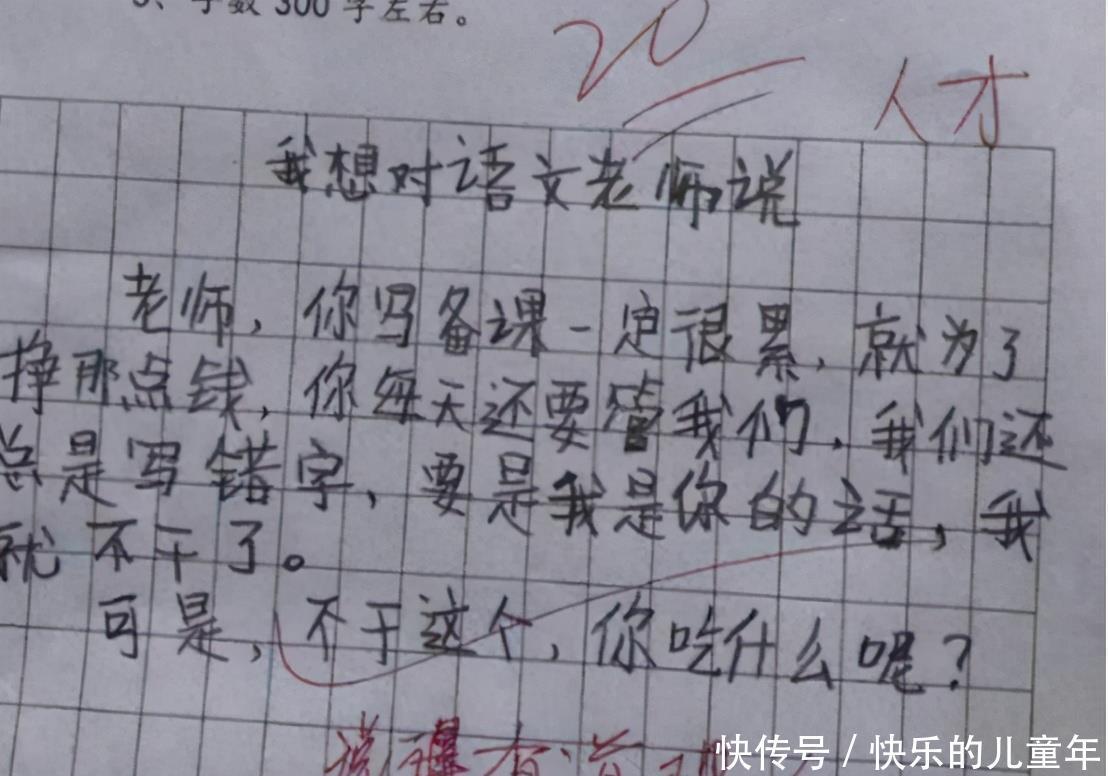 字数300字左右。
20
人才
我想对语文老师说
老师，你写备课一定很累，就为了
挣那点钱，你每天还要管我们，我们还
总是写错字，要是我是你的话，我
就不干了。
可是，不干这个，你吃什么呢？
快传号 / 快乐的儿童年